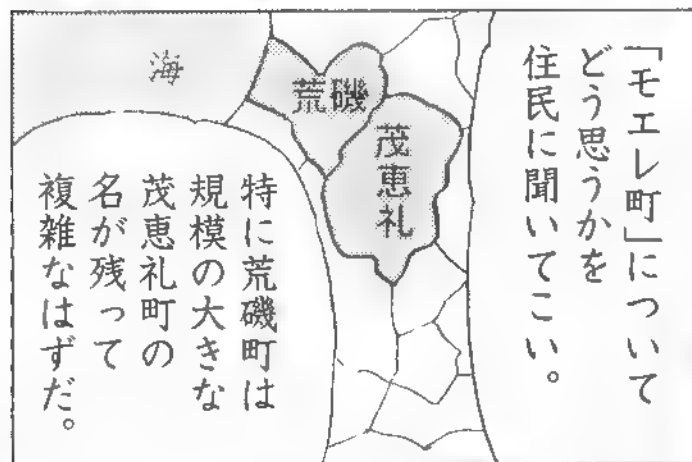 「モエレ町」について
どう思うかを
住民に聞いてこい。
海
荒磯
茂恵礼
特に荒磯町は
規模の大きな
茂恵礼町の
名が残って
複雑なはずだ。